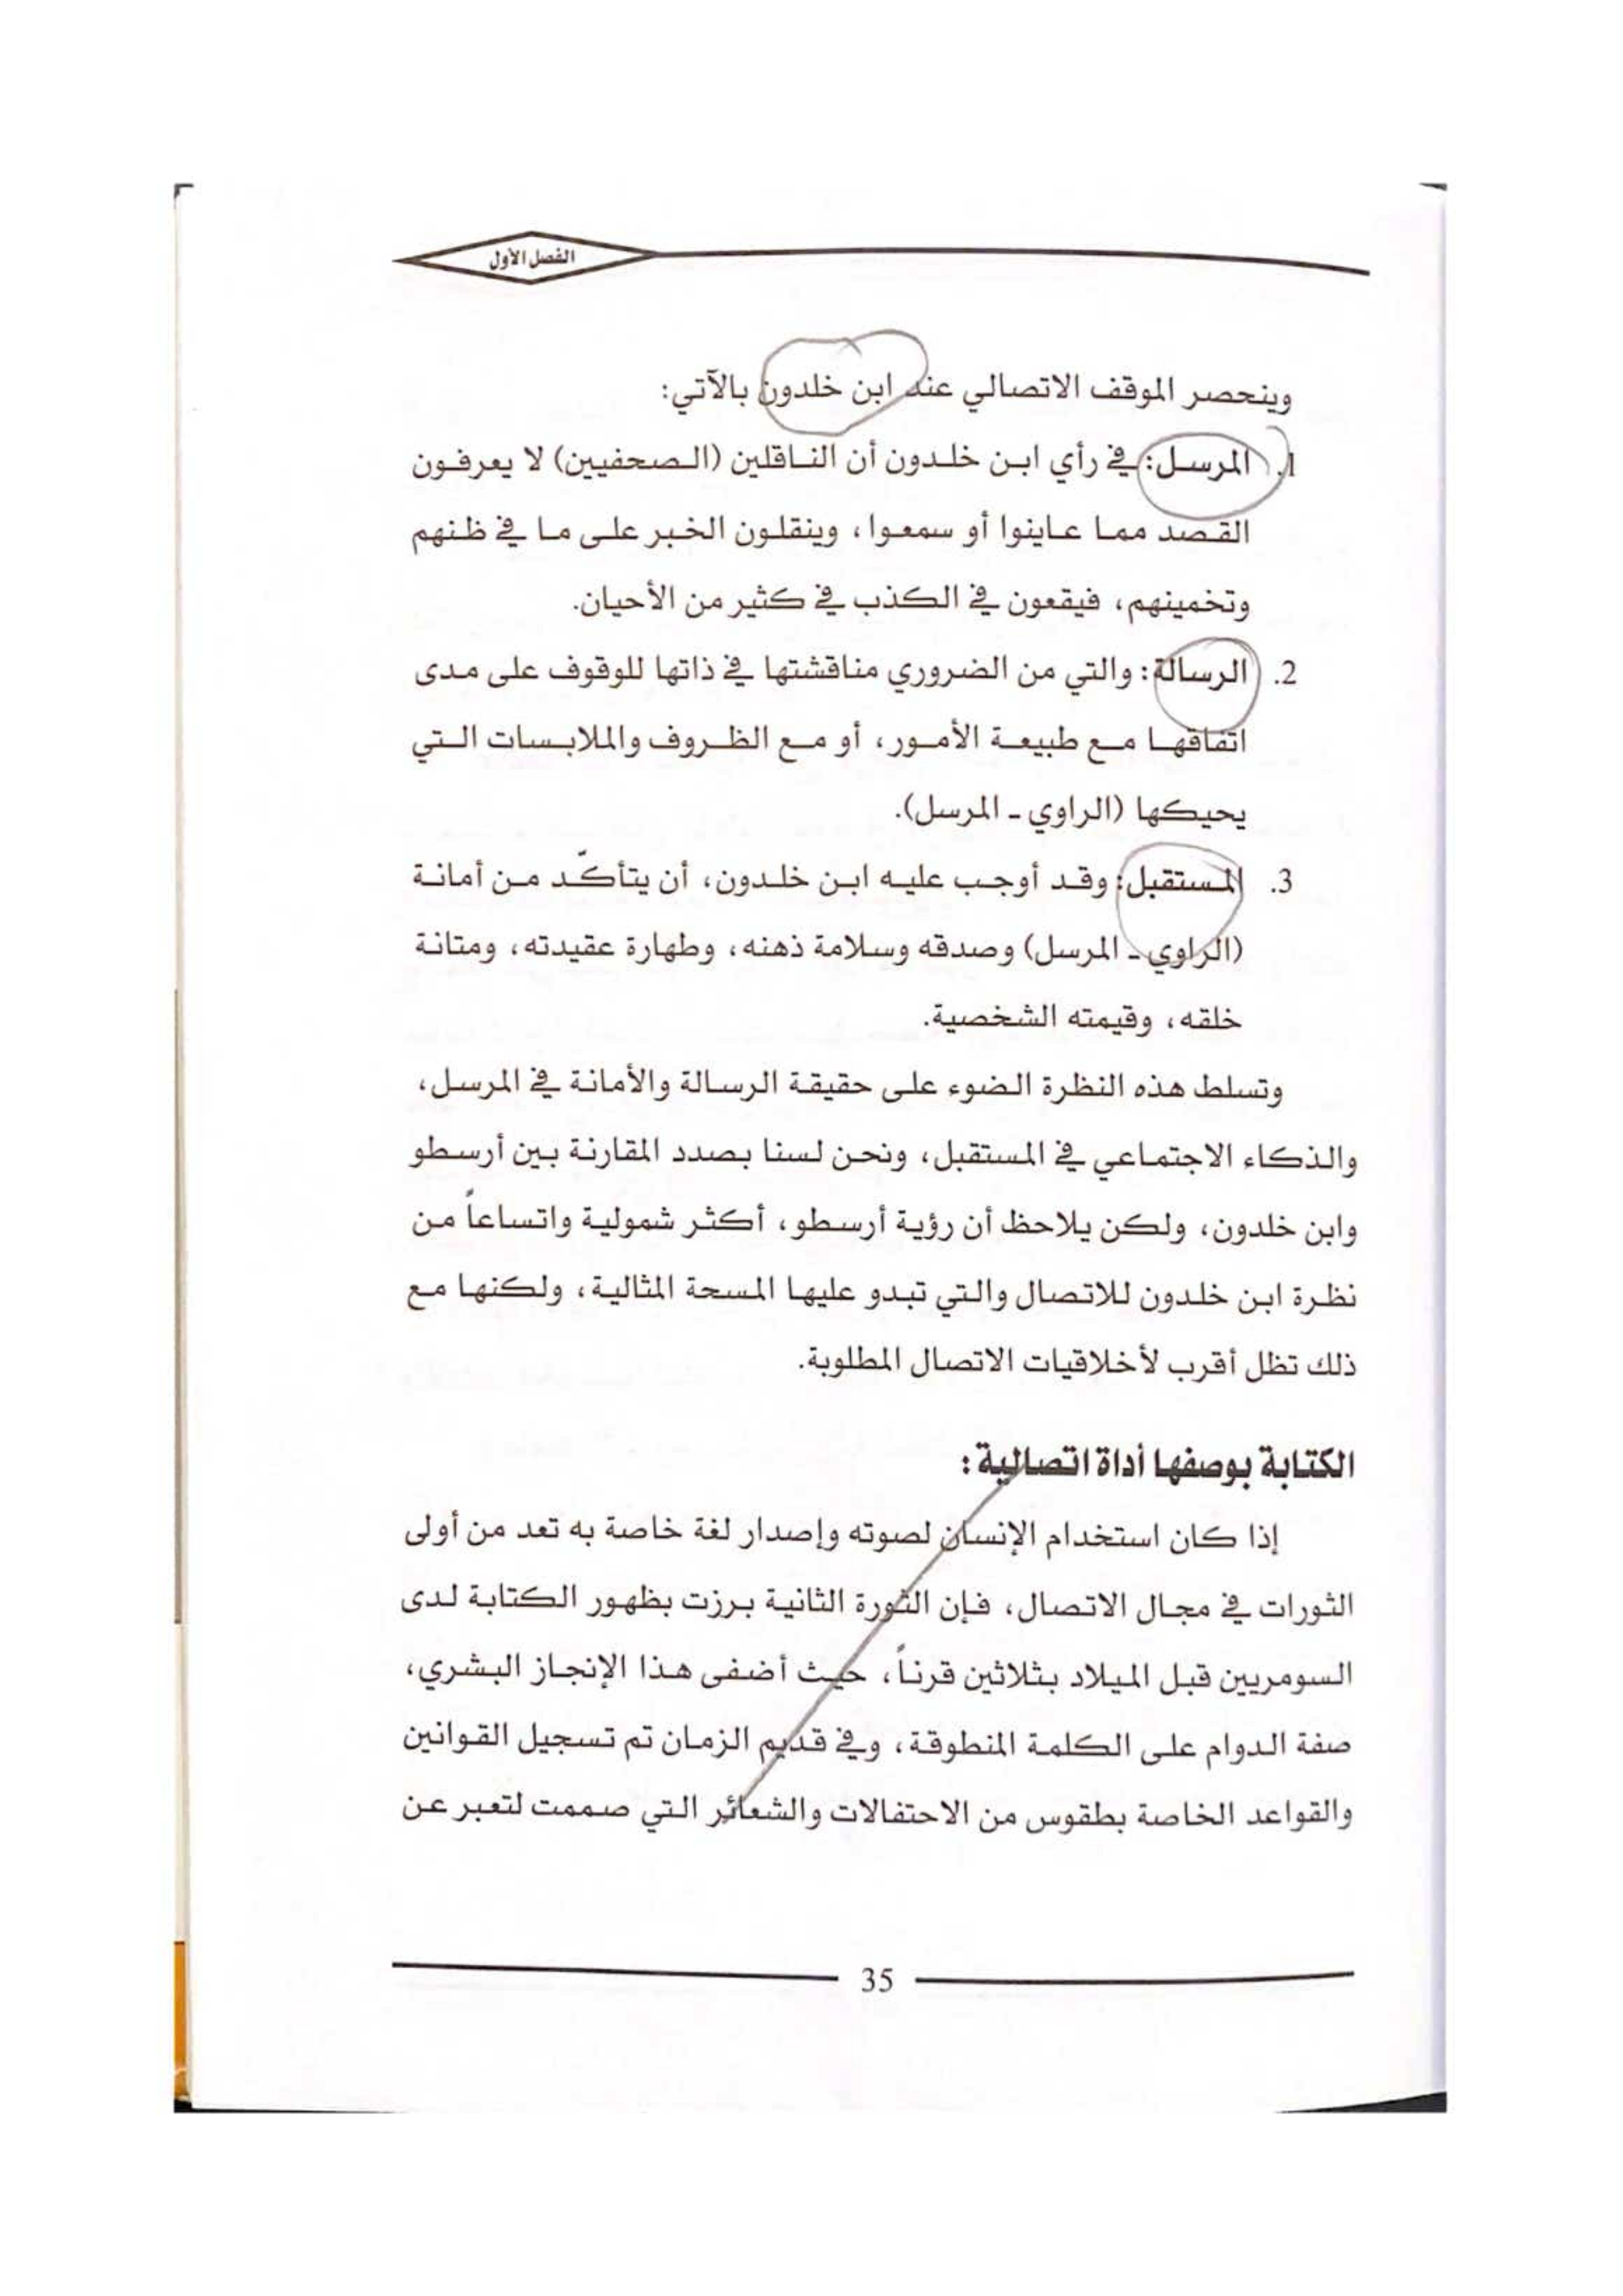 الفصل الأول
وينحصر الموقف الاتصالي عند ابن خلدون بالآتي:
1. المرسل: في رأي ابن خلدون أن الناقلين (الصحفيين) لا يعرفون
القصد مما عاينوا أو سمعوا، وينقلون الخبر على ما في ظنهم
وتخمينهم، فيقعون في الكذب في كثير من الأحيان.
2. الرسالة: والتي من الضروري مناقشتها في ذاتها للوقوف على مدى
اتفاقها مع طبيعة الأمور، أو مع الظروف والملابسات التي
يحيكها (الراوي - المرسل).
3. المستقبل: وقد أوجب عليه ابن خلدون، أن يتأكّد من أمانة
(الراوي - المرسل) وصدقه وسلامة ذهنه، وطهارة عقيدته، ومتانة
خلقه، وقيمته الشخصية.
وتسلط هذه النظرة الضوء على حقيقة الرسالة والأمانة في المرسل،
والذكاء الاجتماعي في المستقبل، ونحن لسنا بصدد المقارنة بين أرسطو
وابن خلدون، ولكن يلاحظ أن رؤية أرسطو، أكثر شمولية واتساعاً من
نظرة ابن خلدون للاتصال والتي تبدو عليها المسحة المثالية، ولكنها مع
ذلك تظل أقرب لأخلاقيات الاتصال المطلوبة.
الكتابة بوصفها أداة اتصالية:
إذا كان استخدام الإنسان لصوته وإصدار لغة خاصة به تعد من أولى
الثورات في مجال الاتصال، فإن الثورة الثانية برزت بظهور الكتابة لدى
السومريين قبل الميلاد بثلاثين قرناً، حيث أضفى هذا الإنجاز البشري،
صفة الدوام على الكلمة المنطوقة، وفي قديم الزمان تم تسجيل القوانين
والقواعد الخاصة بطقوس من الاحتفالات والشعائر التي صممت لتعبر عن
35